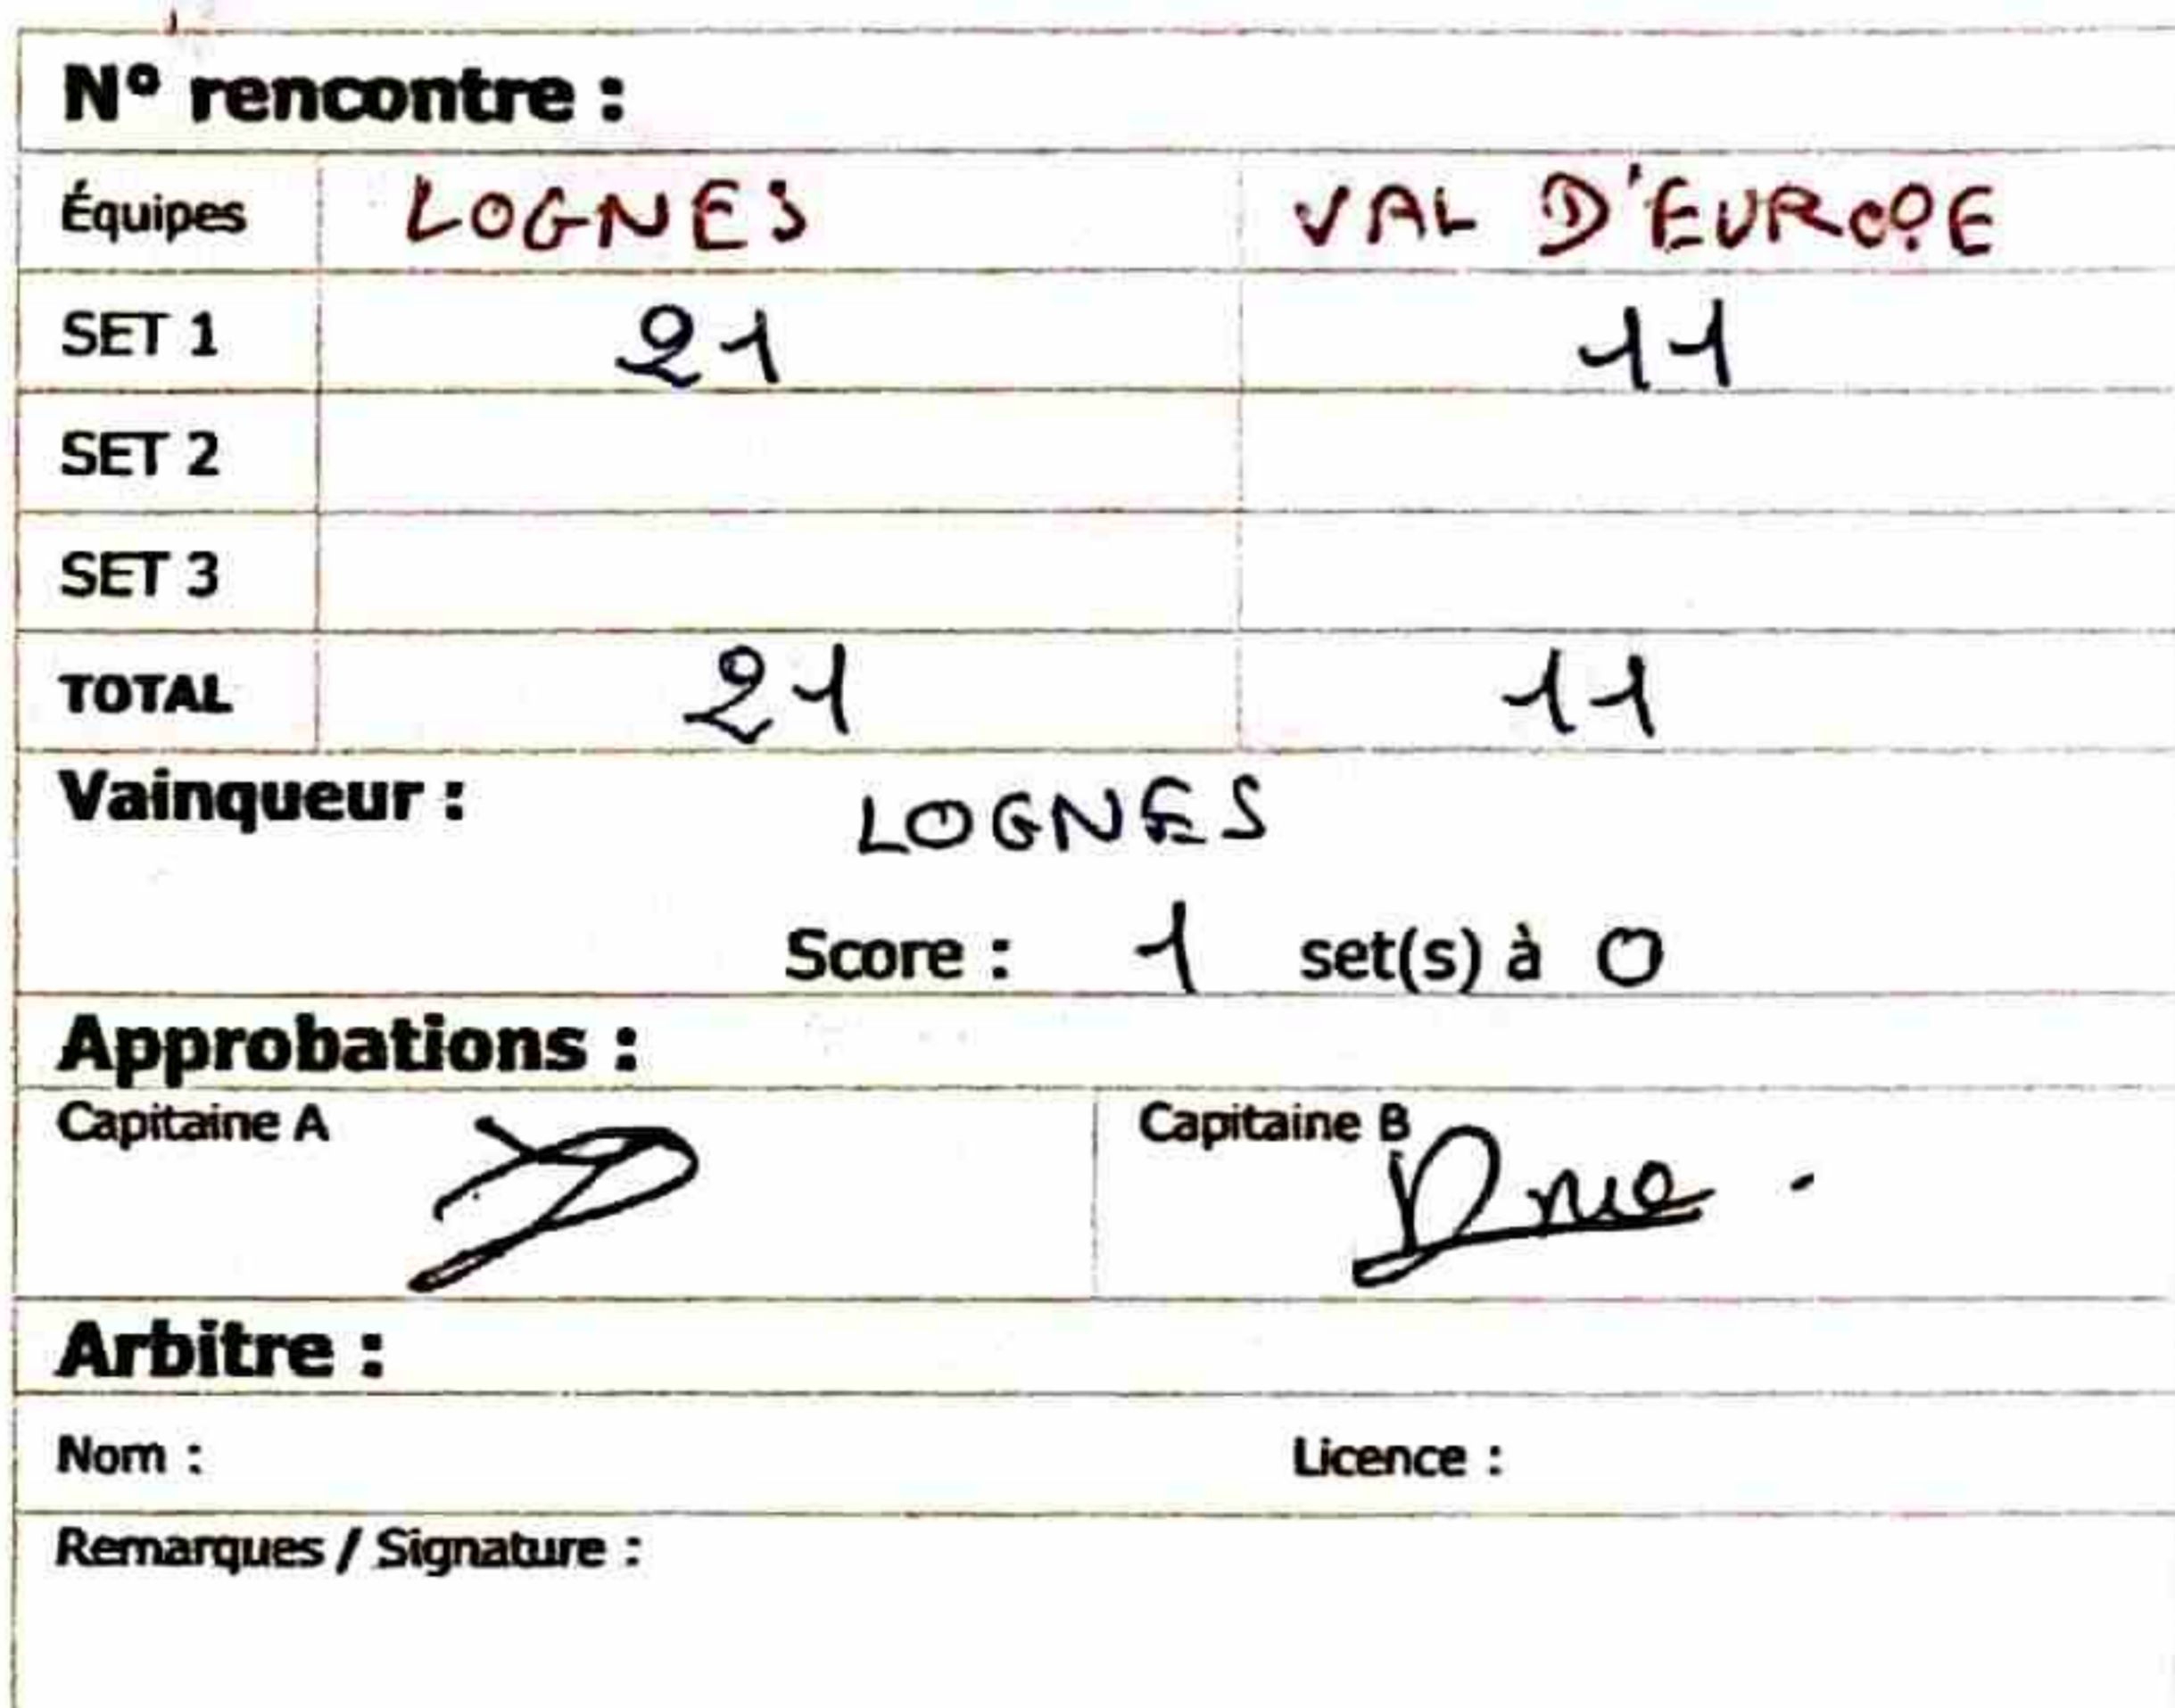 N° rencontre :
Équipes LOGNES VAL D'EUROPE
SET 1 21 11
SET 2
SET 3
TOTAL 21 11
Vainqueur : LOGNES
Score : 1 set(s) à 0
Approbations :
Capitaine A Capitaine B
Arbitre :
Nom : Licence :
Remarques / Signature :